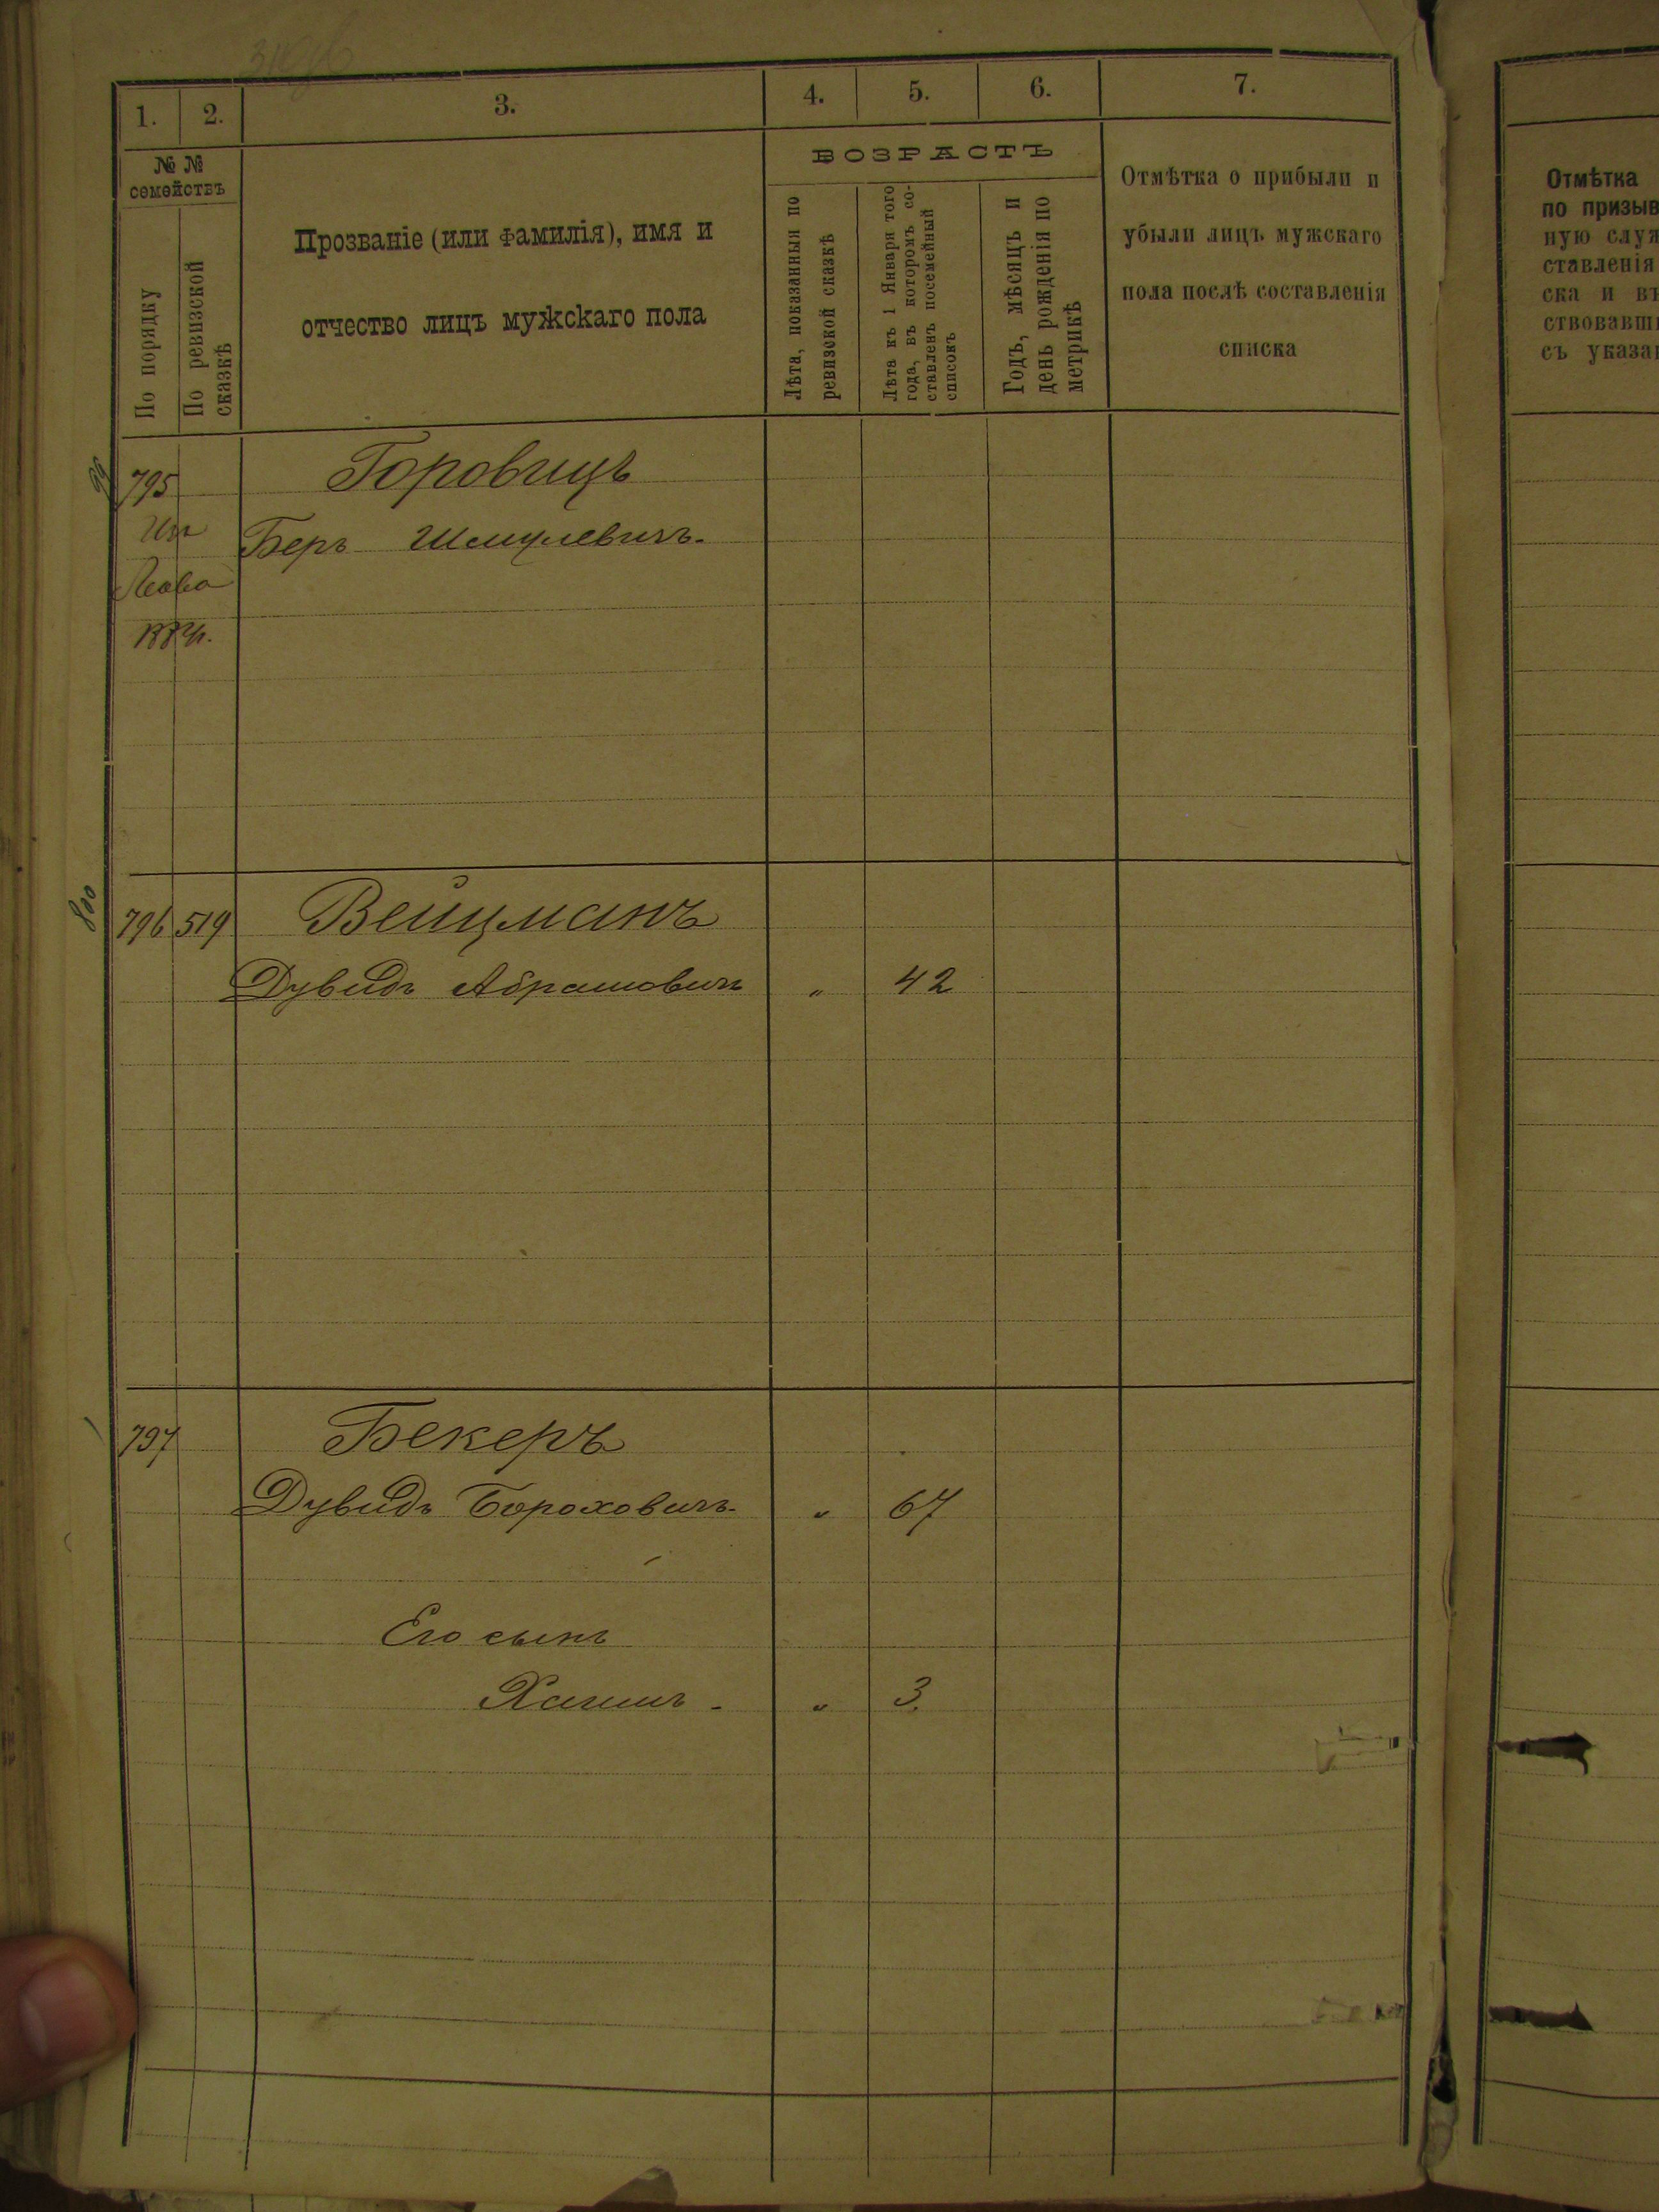 1.
2.
3.
4.
5.
6.
7.
№ №
семействъ
По порядку
По ревизской
сказкѣ
Прозваніе (или фамилія), имя и
отчество лицъ мужскаго пола
ВОЗРАСТЪ
Лѣта, показанныя по
ревизской сказкѣ
Лѣта къ 1 Января того
года, въ которомъ со-
ставленъ посемейный
списокъ
Годъ, мѣсяцъ и
день рожденія по
метрикѣ
Отмѣтка о прибыли и
убыли лицъ мужскаго
пола послѣ составленія
списка
Отмѣтка
по призыв
ную служ
ставленія
ска и въ
ствовавши
съ указан
795 Горовицъ
Беръ Шмулевичъ.
800
796 519 Вейцманъ
Дувидъ Абрамовичъ " 42
797 Бекеръ
Дувидъ Бороховичъ. " 67
Его сынъ
Хаимъ - " 3.